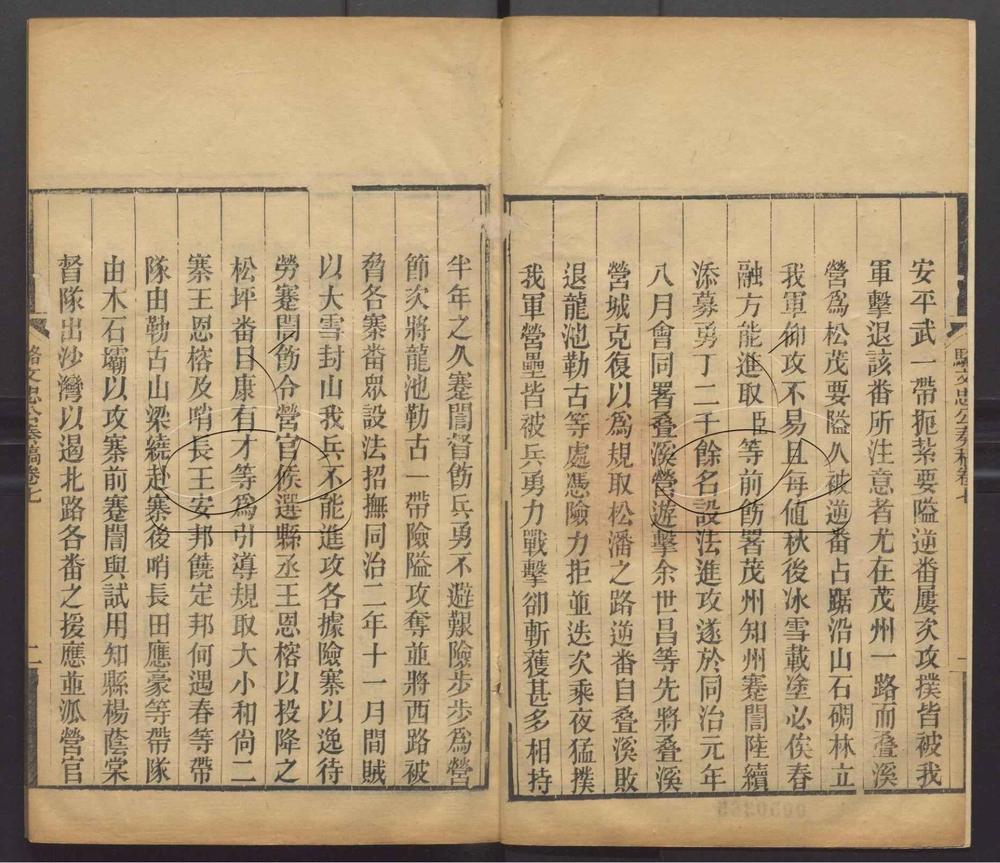 安平武一帶扼紮要隘逆番屢次攻撲皆被我
軍擊退該番所注意者尤在茂州一路而疊溪
營為松茂要隘久被逆番占踞沿山石碉林立
我軍仰攻不易且每値秋後冰雪載塗必俟春
融方能進取臣等前飭署茂州知州蹇誾陸續
添募勇丁二千餘名設法進攻遂於同治元年
八月會同署疊溪營遊擊余世昌等先將疊溪
營城克復以為規取松潘之路逆番自疊溪敗
退龍池勒古等處憑險力拒並迭次乘夜猛撲
我軍營壘皆被兵勇力戰擊卻斬獲甚多相持
駱文忠公奏稿卷七
半年之久蹇誾督飭兵勇不避艱險步步為營
節次將龍池勒古一帶險隘攻奪並將西路被
脅各寨番眾設法招撫同治二年十一月間賊
以大雪封山我兵不能進攻各據險寨以逸待
勞蹇誾飭令營官候選縣丞王恩榕以投降之
松坪番目康有才等為引導規取大小和尙二
寨王恩榕及哨長王安邦饒定邦何遇春等帶
隊由勒古山梁繞赴寨後哨長田應豪等帶隊
由木石壩以攻寨前蹇誾與試用知縣楊蔭棠
督隊出沙灣以遏北路各番之援應並派營官
駱文忠公奏稿卷七
二